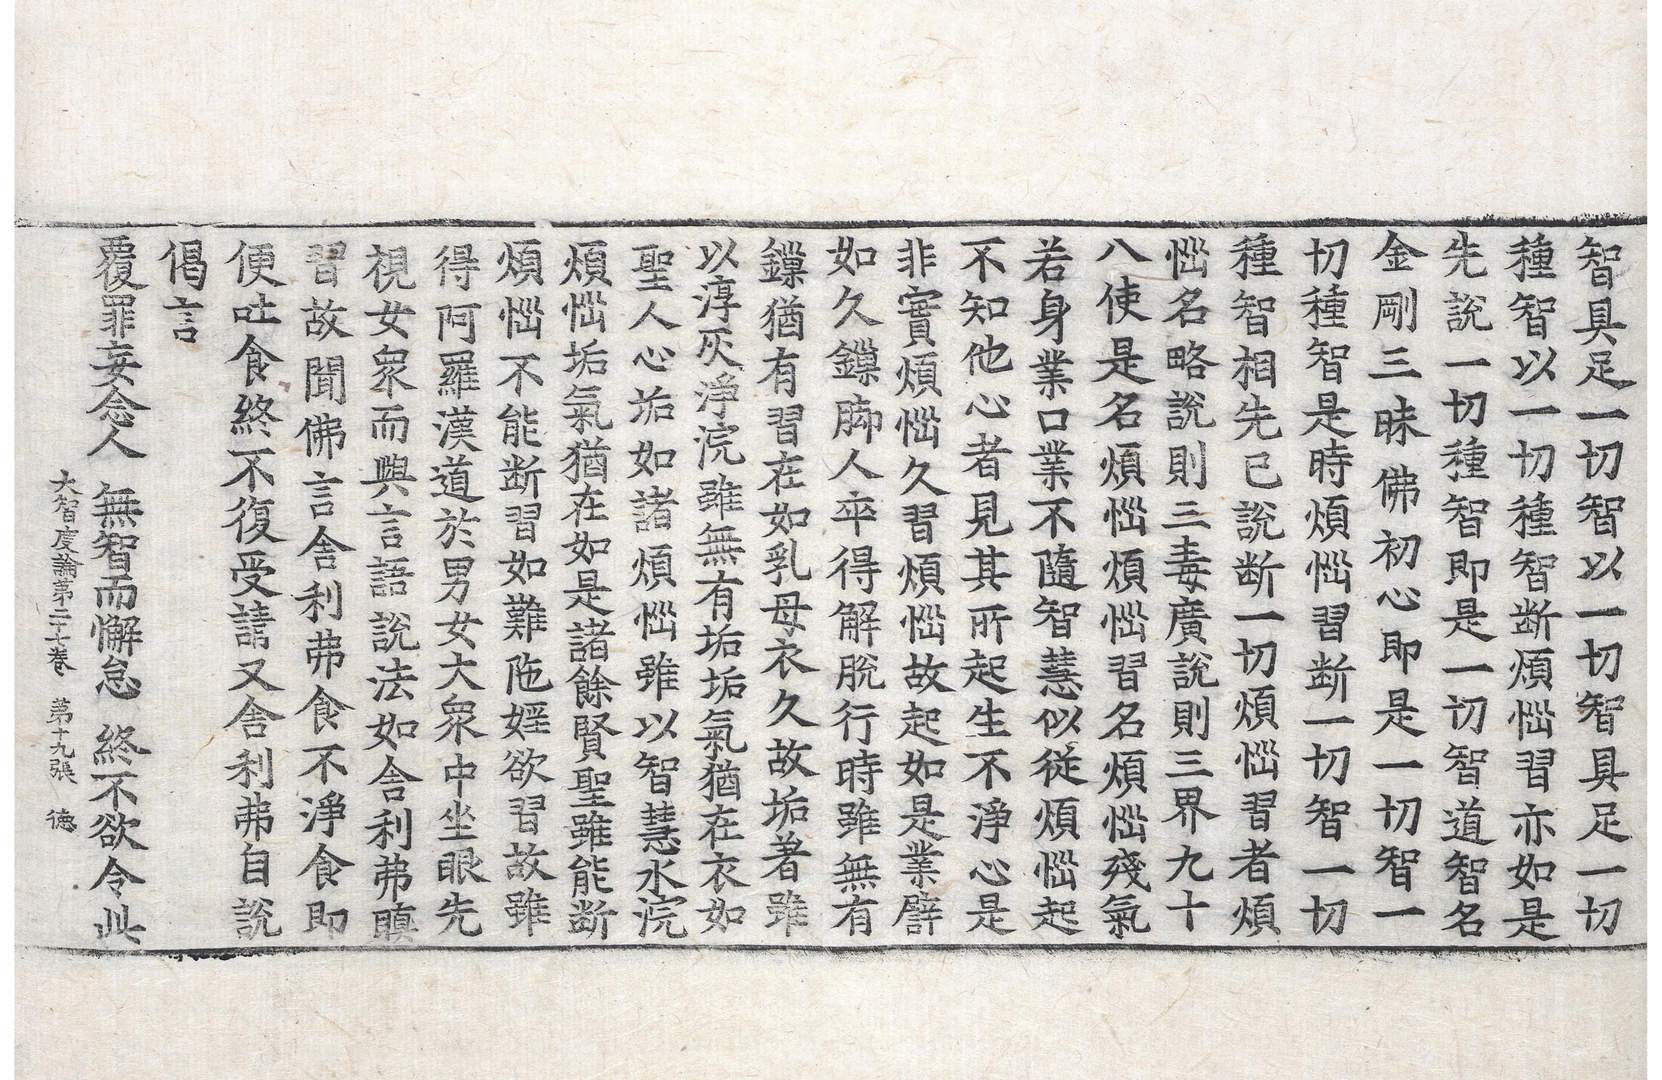 智具足一切智以一切智具足一切
種智以一切種智断煩惱習亦如是
先說一切種智即是一切智道智名
金剛三昧佛初心即是一切智一
切種智是時煩惱習断一切智一切
種智相先已說断一切煩惱習者煩
惱名略說則三毒廣說則三界九十
八使是名煩惱煩惱習名煩惱殘氣
若身業口業不隨智慧似從煩惱起
不知他心者見其所起生不淨心是
非實煩惱久習煩惱故起如是業譬
如久鏁脚人卒得解脫行時雖無有
鏁猶有習在如乳母衣久故垢著雖
以淳灰淨浣雖無有垢垢氣猶在衣如
聖人心垢如諸煩惱雖以智慧水浣
煩惱垢氣猶在如是諸餘賢聖雖能断
煩惱不能断習如難陁婬欲習故雖
得阿羅漢道於男女大衆中坐眼先
視女衆而與言語說法如舍利弗瞋
習故聞佛言舍利弗食不淨食即
便吐食終不復受請又舍利弗自說
偈言
覆罪妄念人　無智而懈怠　終不欲令此
大智度論第二十七卷　第十九張　德